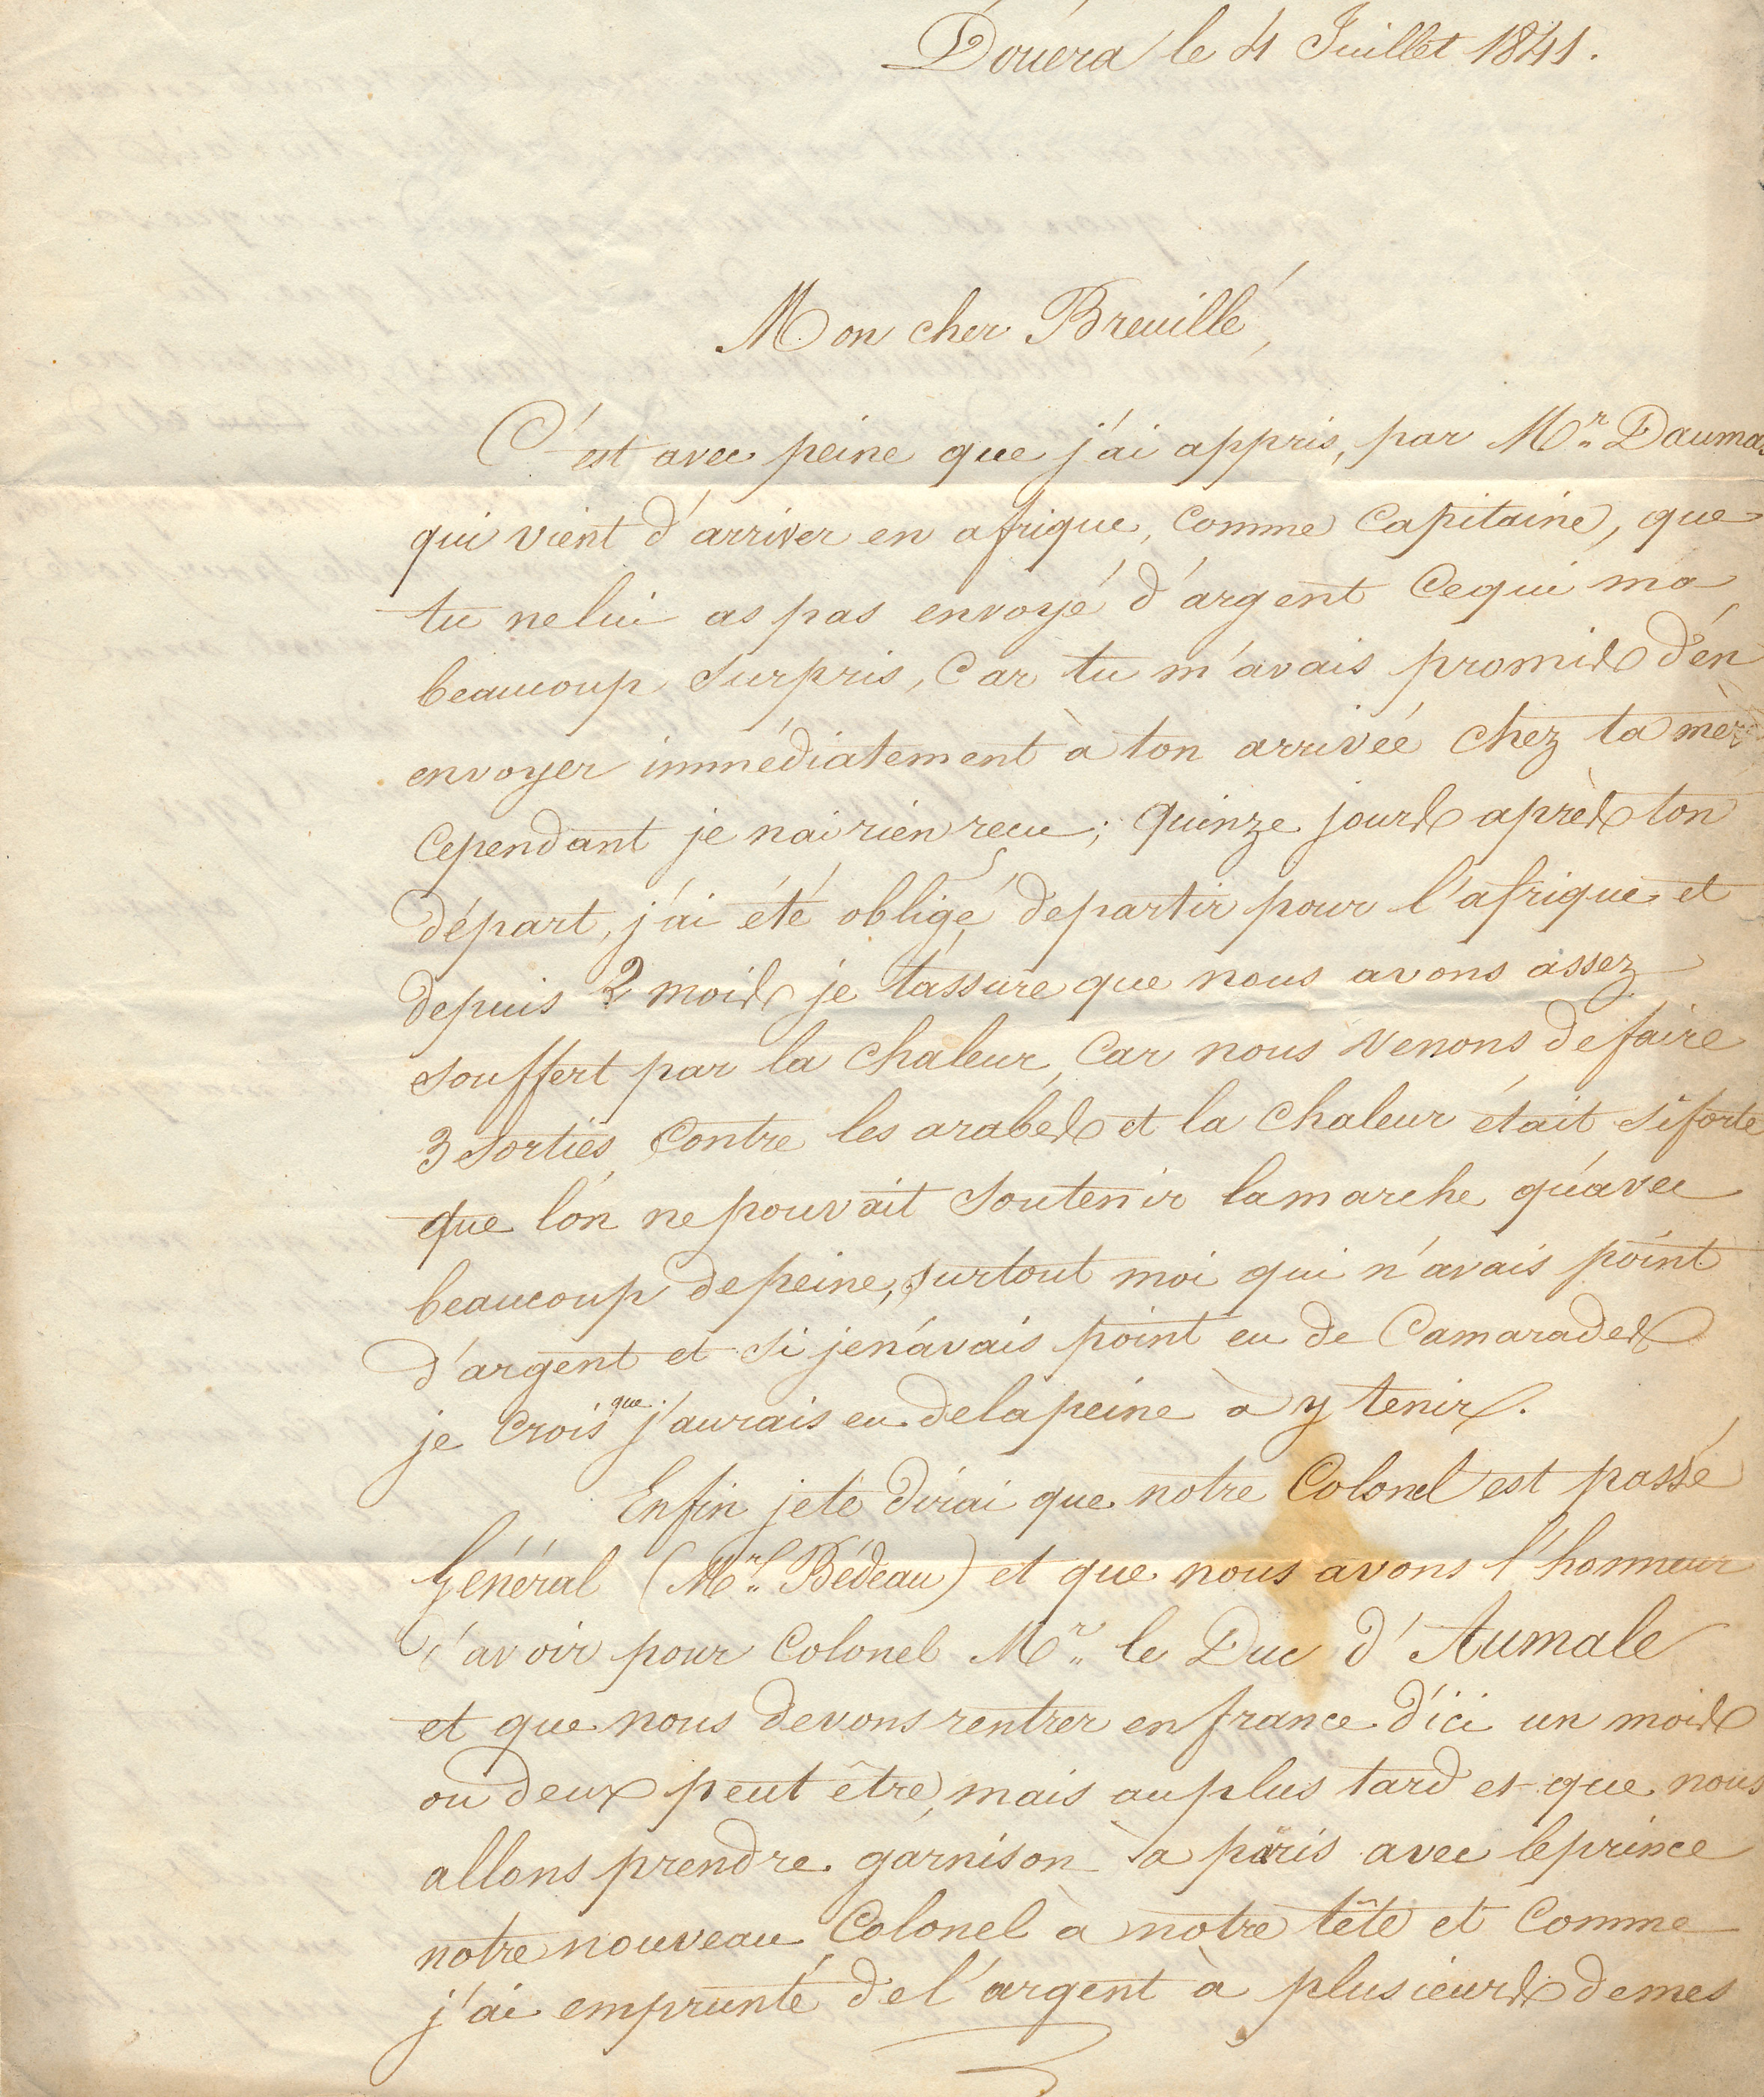 Douéra le 4 Juillet 1841.
Mon cher Breuillé,
C'est avec peine que j'ai appris, par Mr. Daumas
qui vient d'arriver en afrique, comme Capitaine, que
tu ne lui as pas envoyé d'argent Cequi ma
beaucoup surpris, Car tu m'avais promis d'en
envoyer immédiatement à ton arrivée chez ta mère
Cependant je n'ai rien recu; quinze jours après ton
départ, j'ai été obligé departir pour l'afrique et
depuis 2 mois je t'assure que nous avons assez
souffert par la chaleur, Car nous venons defaire
3 sorties Contre les arabes et la chaleur était si forte
que l'on ne pouvait soutenir lamarche qu'avec
beaucoup depeine, surtout moi qui n'avais point
d'argent et si jen'avais point eu de Camarades
je Crois que j'aurais eu delapeine à y tenir.
Enfin jete dirai que notre Colonel est passé
Général (Mr. Bédeau) et que nous avons l'honneur
d'avoir pour Colonel Mr. le Duc d'Aumale
et que nous devons rentrer en france d'ici un mois
ou deux peut être, mais au plus tard et que nous
allons prendre garnison à paris avec leprince
notre nouveau Colonel à notre tête et Comme
j'ai emprunté del'argent à plusieurs demes